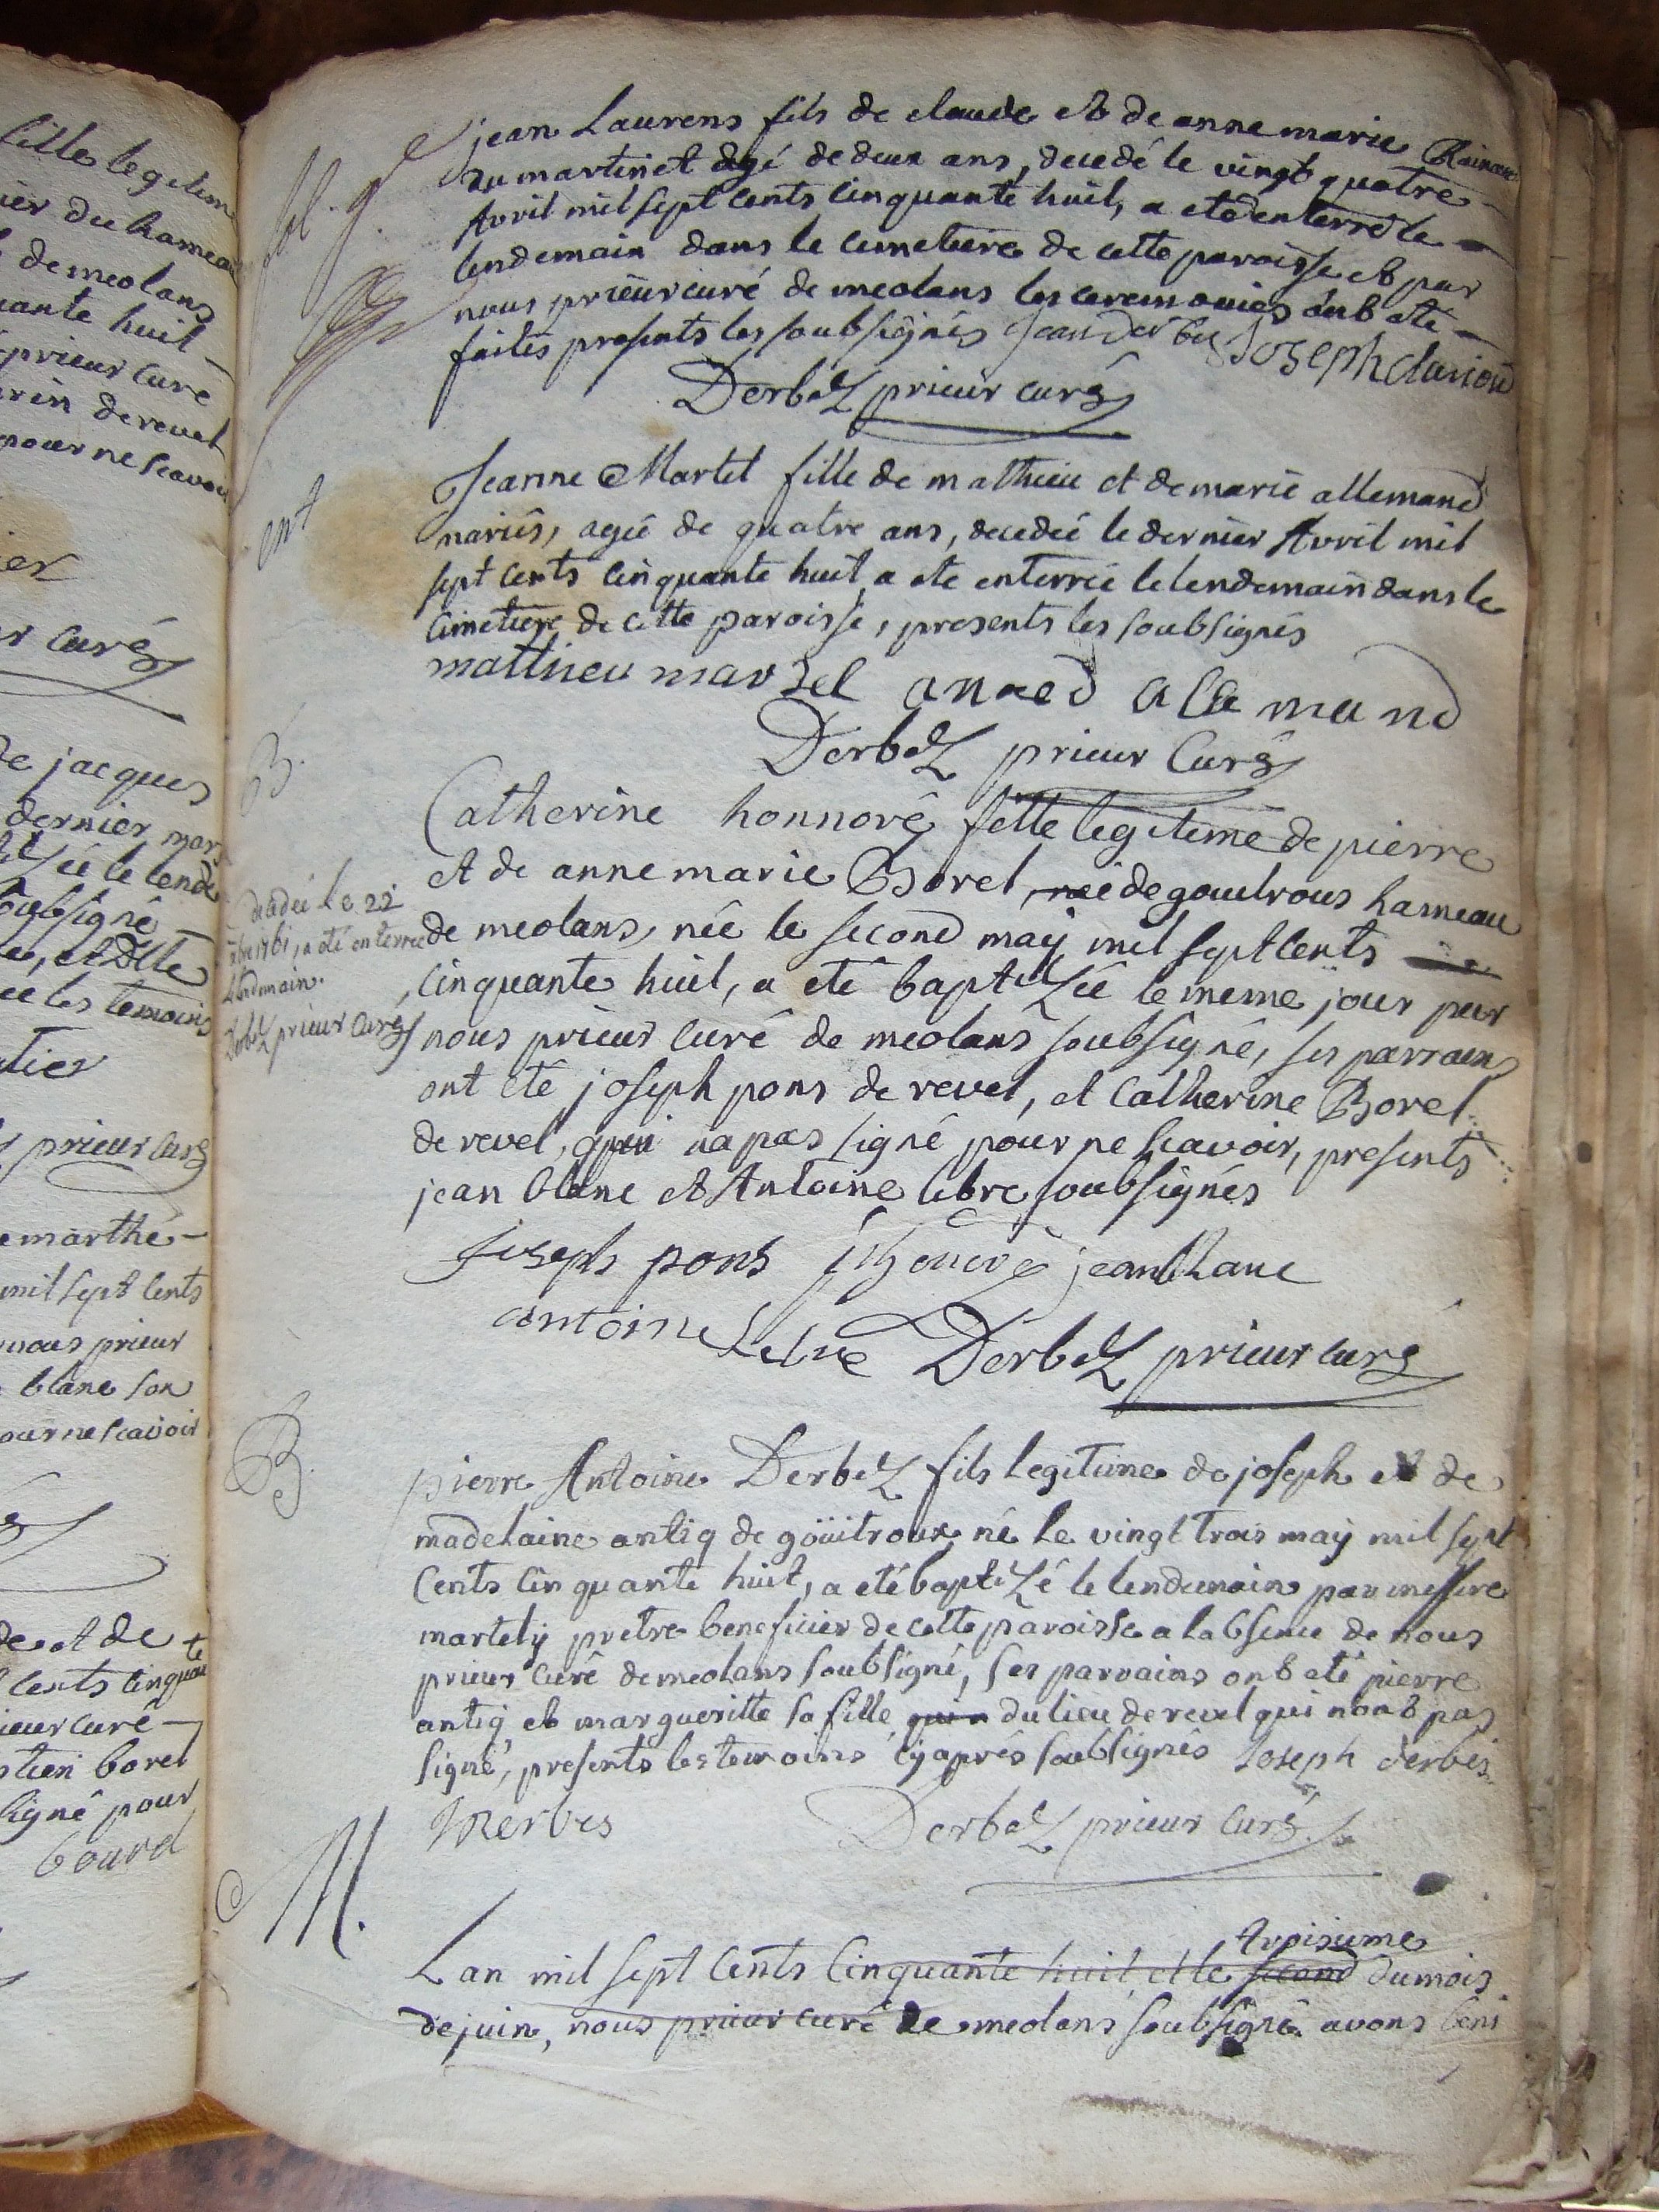 fille legitim
ier du hameau
de meolans
uante huit
prieur curé
rin de revel
pour ne scavoir
ier
r curé
de jacques
dernier mar
zée le lende
soubsigné
ée, et dlle
ée les temoins
atier
prieur curé
e marthe
mil sept cents
nous prieur
blanc son
our ne scavoir
de et de
cents cinquante
ieur curé
stien borel
signé pour
bourd
fol. 9.
jean Laurens fils de claude et de anne marie Rainaud
du martinet agé de deux ans, decedé le vingt quatre
Avril mil sept cents cinquante huit, a ete enterré le
lendemain dans le cimetiere de cette paroisse et par
nous prieur curé de meolans les ceremonies ont eté
faites presents les soubsignés Jean Derbez Joseph clariond
Derbez prieur curé
ent
Jeanne Martel fille de mathieu et de marie allemand
mariés, agée de quatre ans, decedée le dernier Avril mil
sept cents cinquante huit a ete enterrée le lendemain dans le
cimetiere de cette paroisse, presents les soubsignés
matthieu martel anred alemand
Derbez prieur curé
B.
Catherine honnoré fille legitime de pierre
et de anne marie Borel, née de gouitrous hameau
de meolans, née le second may mil sept cents
cinquante huit, a eté baptizée le meme jour par
nous prieur curé de meolans soubsigné, ses parrains
ont eté joseph pons de revel, et Catherine Borel
de revel, qui na pas signé pour ne scavoir, presents
jean blanc et Antoine lebre soubsignés
decedée le 22
1761, a eté enterrée
lendemain.
Derbez prieur curé
Joseph pons honoré jean blanc
antoine Lebre Derbez prieur curé
B.
pierre Antoine Derbez fils legitime de joseph et de
madelaine antiq de goüitroux né le vingt trois may mil sept
Cents cinquante huit, a eté baptizé le lendemain par messire
martely pretre beneficier de cette paroisse a labsence de nous
prieur curé de meolans soubsigné, ses parrains ont eté pierre
antiq et margueritte sa fille qui n du lieu de revel qui nont pas
signé, presents les temoins cy aprés soubsignés Joseph derbes
Derbes Derbez prieur curé
M.
troisieme
Lan mil sept cents cinquante huit et le second du mois
de juin, nous prieur curé de meolans soubsigné avons beni